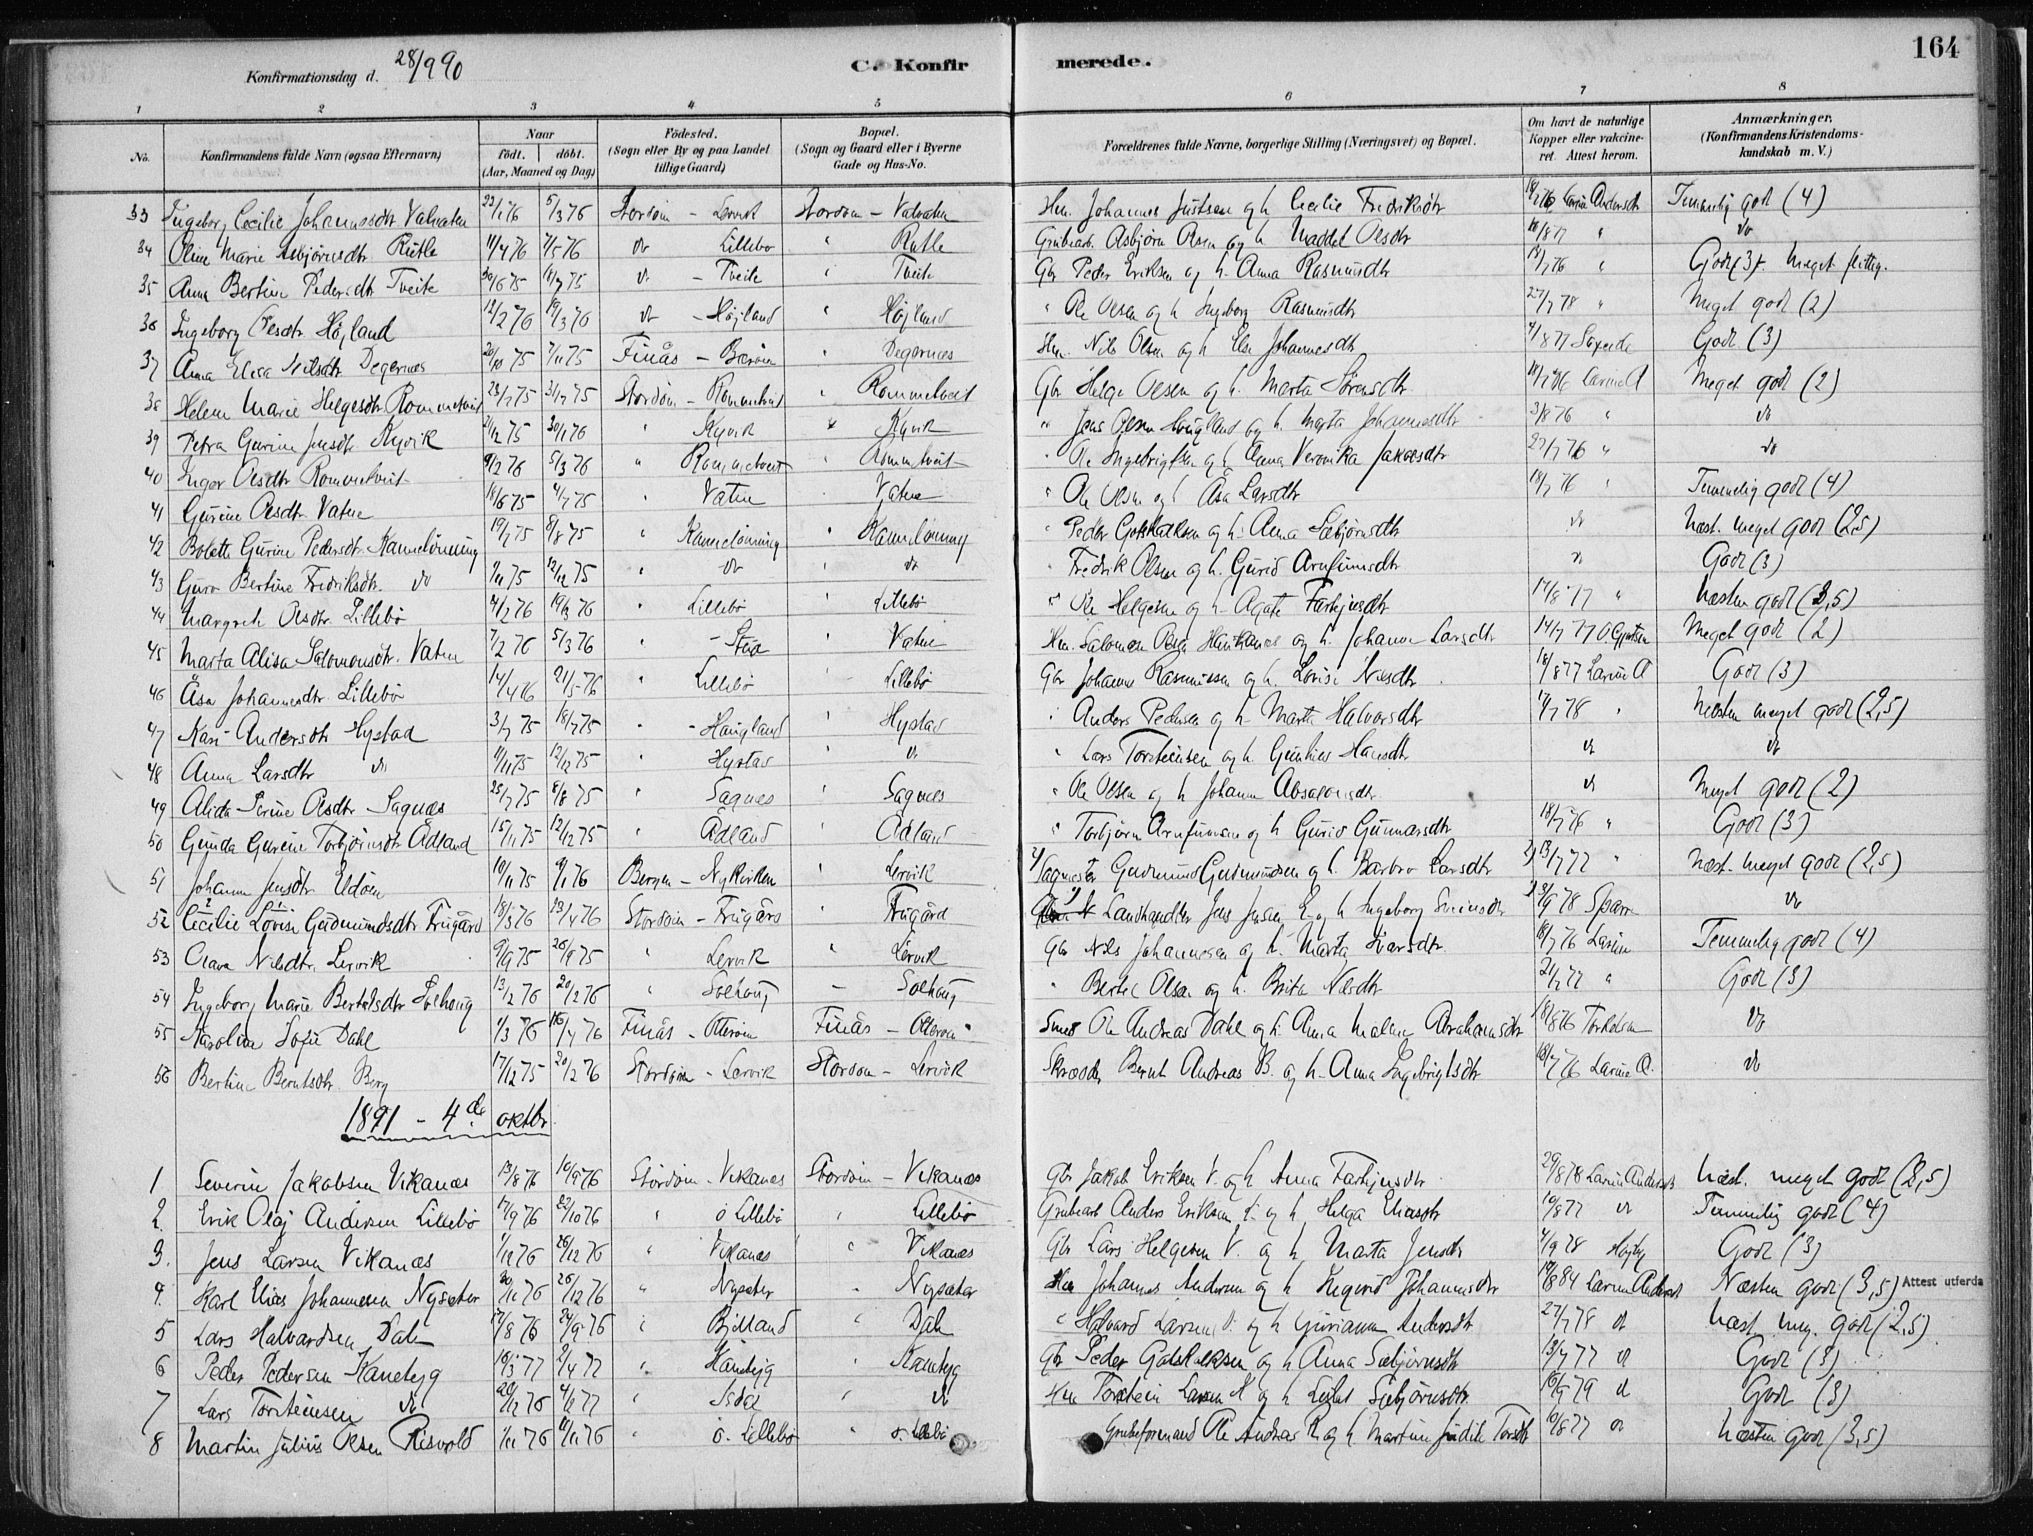 164
Konfirmationsdag d. 28/9 90
C. Konfirmerede.
1 2 3 4 5 6 7 8
No. Konfirmandens fulde Navn (ogsaa Efternavn) Naar født. døbt. (Aar, Maaned og Dag) Fødested. (Sogn eller By og paa Landet tillige Gaard) Bopæl. (Sogn og Gaard eller i Byerne Gade og Hus-No. Forældrenes fulde Navne, borgerlige Stilling (Næringsvei) og Bopæl. Om havt de naturlige Kopper eller vakcineret. Attest herom. Anmærkninger. (Konfirmandens Kristendomskundskab m. V.)
33 Ingeborg Cecilie Johannesdtr Valvatn 22/1 76 5/3 76 Stordøen - Lervik Stordøen - Valvatn Hm. Johannes Justsen og h. Cecilie Fredriksdtr Larine Andersdtr Temmelig godt (4)
34 Oline Marie Asbjørnsdtr Rutle 11/4 76 7/5 76 do Lillebø " Rutle Grubearb. Asbjørn Olsen og h. Maddel Olsdtr 18/8 77 " do
35 Anna Bertine Pedersdtr Tveite 30/6 75 do - Tveite " Tveite Gbr Peder Eriksen og h. Anna Rasmusdtr 18/7 76 " Godt (3) meget flittig.
36 Ingeborg Olesdtr Højland 12/2 76 19/3 76 do - Højland " Højland " Ole Olsen og h Ingeborg Rasmusdtr 27/7 78 " Meget godt (2)
37 Anna Elisa Nilsdtr Degernes 20/10 75 7/11 75 Finås - Degernes Hm. Nils Olsen og h Else Johannesdtr Godt (3)
38 Helene Marie Helgesdtr Rommetveit 23/7 75 31/7 75 Stordøen - Rommetveit " Rommetveit Gbr Helge Olsen og h. Marta Sørensdtr 18/7 76 Larine A Meget godt (2)
39 Petra Gurine Jensdtr Kyvik 21/12 75 30/1 76 " Kyvik " Kyvik " Jens Olsen Haugland og h. Marta Johannesdtr 3/8 76 " do
40 Inger Olsdtr Rommetveit 9/2 76 5/3 76 " Rommetveit " Rommetveit " Ole Ingebrigtsen og h Anna Veronika Jakobsdtr 27/7 76 " do
41 Gurine Olsdtr Vatne 18/6 75 4/7 75 " Vatne Vatne " Ole Olsen og h Åsa Larsdtr 18/7 76 " Temmelig godt (4)
42 Bolette Gurine Pedersdtr. Kannelønning 19/7 75 8/8 75 " Kannelønning " Kannelønning " Peder Gotskalksen og h. Anna Sæbjørnsdtr do Næst. meget godt (2,5)
43 Guro Bertine Fredriksdtr. do 7/11 75 12/12 75 " do " do " Fredrik Olsen og h. Gurid Arnfinnsdtr do Godt (3)
44 Margrete Olsdtr. Lillebø 4/2 76 " Lillebø " Lillebø " Ole Helgesen og h. Agate Farkjelsdtr 17/8 77 " Næsten godt (3,5)
45 Marta Alisa Salomonsdtr. Vatne 7/2 76 5/3 76 " - Stua " Vatne Hm. Salomon Olsen og h. Johanne Larsdtr 14/7 77 Meget godt (2)
46 Åsa Johannesdtr. Lillebø 14/4 76 21/5 76 " Lillebø Lillebø Gbr Johannes Rasmussen og h. Lovise Nilsdtr 18/8 77 Larine A Godt (3)
47 Kari Andersdtr Hystad 3/7 75 18/7 75 " - Haugland " Hystad " Anders Pedersen og h. Marta Halvorsdtr 17/7 78 " Næsten meget godt (2,5)
48 Anna Larsdtr do 11/11 75 12/12 75 " Hystad " do " Lars Torsteinsen og h. Gunhild Hansdtr do do
49 Alida Serine Olsdtr Sagnæs 25/7 75 8/8 75 " Sagnæs Sagnæs " Ole Olsen og h Johanne Absalonsdtr do Meget godt (2)
50 Gunda Gurine Torbjørnsdtr Ådland 15/11 75 12/12 75 " Ådland " Ådland " Torbjørn Arnfinnsen og h Gurid Gunnarsdtr 18/7 76 " Godt (3)
51 Johanne Jensdtr Eldøen 10/11 75 9/1 76 Bergen - Nykirken " Lervik Gudmund Gudmundsen og h. Barbro Larsdtr 13/7 77 " Næst. meget godt (2,5)
52 Cecilie Lovise Gudmundsdtr Frugård 18/3 76 13/4 76 Stordøen - Frugård " Frugård Landhandler Jens Jensen E. og h Ingeborg Sveinsdtr 3/9 78 Sparre do
53 Olava Nilsdtr. Lervik 9/9 75 26/9 75 " Lervik " Lervik Gbr Nils Johannesen og h. Marta Ivarsdtr 18/7 76 Larine Temmelig godt (4)
54 Ingeborg Marie Bertelsdtr Solhaug 13/2 76 20/2 76 " Solhaug - Solhaug " Bertel Olsen og h. Brita Nilsdtr 21/7 77 " Godt (3)
55 Karoline Sofie Dahl 1/3 76 16/4 76 Finås - Otterøen Finås - Otterøen Smed Ole Andreas Dahl og h. Anna Malene Abrahamsdtr 18/8 76 Torkelsen do
56 Bertine Berntsdtr. Berg 17/12 75 20/2 76 Stordøen - Lervik Stordøen - Lervik Skrædder Bernt Andreas B. og h. Anna Ingebrigtsdtr 18/7 76 Larine A. do
1891 - 4de oktbr.
1 Severin Jakobsen Vikanæs 13/8 76 10/9 76 Stordøen - Vikanæs Stordøen - Vikanæs Gbr Jakob Eriksen V. og h Anna Farkjelsdtr 29/8 78 Larine Andersdtr Næst. meget godt (2,5)
2. Erik Olaj Andersen Lillebø 17/9 76 22/10 76 " ø Lillebø " Lillebø Grubearb Anders Eriksen L. og h Helga Eliasdtr 10/8 77 do Temmelig godt (4)
3. Jens Larsen Vikanæs 1/12 76 26/12 76 " Vikanæs " Vikanæs Gbr Lars Helgesen V. og h Marta Jensdtr 4/9 78 Godt (3)
4. Karl Elias Johannesen Nysæter 20/11 76 26/12 76 " Nysæter " Nysæter Hm Johannes Andersen og h Ingerid Johannesdtr 19/8 84 Larine Andersdt Næsten godt (3,5) Attest utferda
5 Lars Halvardsen Dale 17/8 76 24/9 76 " Bjelland " Dale " Halvard Larsen D. og h Guriane Andersdtr 27/7 78 do Næst. meg. godt (2,5)
6 Peder Pedersen Kanebyg 16/3 77 2/4 77 " Kanebyg " Kanebyg Gbr Peder Gotskalksen og h Anna Sæbjørnsdtr 13/7 77 do Godt (3)
7 Lars Torsteinsen do 20/12 76 4/2 77 " " do Hm Torstein Larsen K og h Sæbjørnsdtr. 16/9 79 do Godt (3)
8 Martin Julius Olsen Risvold 1/11 76 11/11 76 " ø. Lillebø " ø. Lillebø Grubeformand Ole Andreas R. og h Martine Judite Torsdtr 10/8 77 do Næsten godt (3,5)